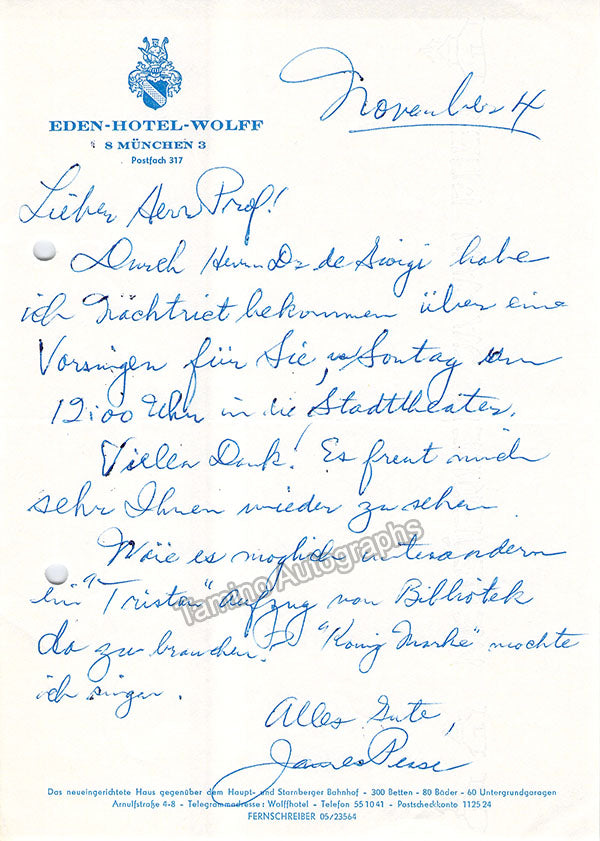 EDEN-HOTEL-WOLFF
8 MÜNCHEN 3
Postfach 317
November 4
Lieber Herr Prof!
Durch Herrn Dr de Giorgi habe
ich Nachtrict bekommen über eine
Vorsingen für Sie, Sontag um
12:00 Uhr in die Stadttheater.
Vielen Dank! Es freut mich
sehr Ihnen wieder zu sehen
Wäre es moglich unterandern
ein "Tristan" aufzug von Bibliotek
da zu brauchen? "Konig Marke" mochte
ich singen.
Alles Gute,
James Pease
Tamino Autographs
Das neueingerichtete Haus gegenüber dem Haupt- und Starnberger Bahnhof - 300 Betten - 80 Bäder - 60 Untergrundgaragen
Arnulfstraße 4-8 - Telegrammadresse: Wolffhotel - Telefon 55 10 41 - Postscheckkonto 1125 24
FERNSCHREIBER 05/23564